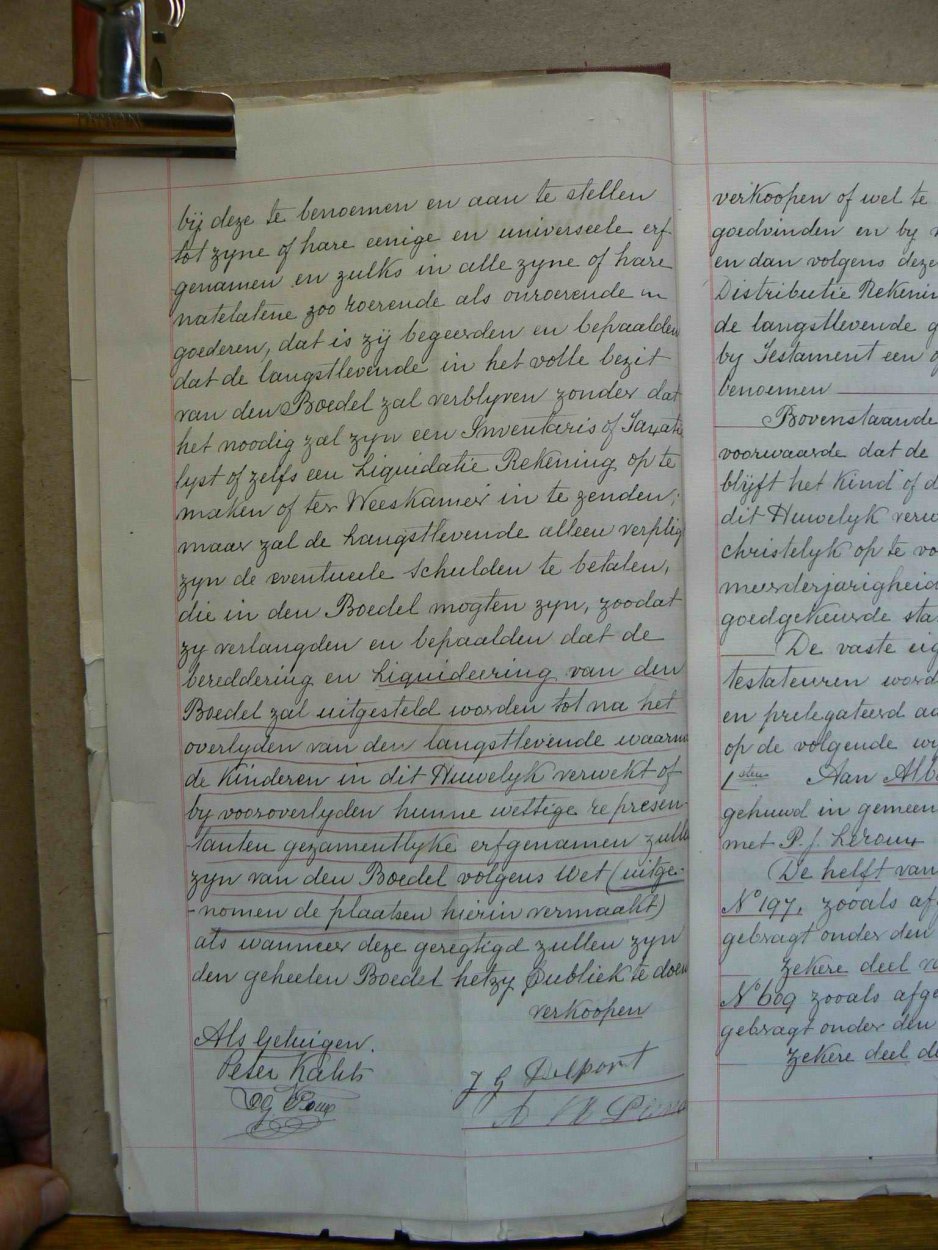 bij deze te benoemen en aan te stellen
tot zyne of hare eenige en universeele erf
genamen en zulks in alle zyne of hare
natelatene zoo roerende als onroerende
goederen, dat is zij begeerden en bepaalden
dat de langstlevende in het volle bezit
van den Boedel zal verblyven zonder dat
het noodig zal zyn een Inventaris of Taxatie
lyst of zelfs een Liquidatie Rekening op te
maken of ter Weeskamer in te zenden;
maar zal de Langstlevende alleen verplig
zyn de eventueele schulden te betalen,
die in den Boedel mogten zyn, zoodat
zy verlangden en bepaalden dat de
bereddering en Liquideering van den
Boedel zal uitgesteld worden tot na het
overlyden van den langstlevende waarna
de Kinderen in dit Huwelyk verwekt of
by vooroverlyden hunne wettige represen-
tanten gezamentlyke erfgenamen zulle
zyn van den Boedel volgens Wet (uitge-
-nomen de plaatsen hierin vermaakt)
als wanneer deze geregtigd zullen zyn
den geheelen Boedel hetzy Publiek te doen
verkoopen
Als Getuigen.
Peter
J G Delport
verkoopen of wel te
goedvinden en by
en dan volgens deze
Distributie Rekenin
de langstlevende g
by Testament een
benoemen
Bovenstaande
voorwaarde dat de
blijft het Kind of d
dit Huwelyk verw
christelyk op te vo
meerderjarigheid
goedgekeurde sta
De vaste eig
testateuren word
en prelegateerd aa
op de volgende wy
1sten Aan Alb
gehuwd in gemeen
met P. J. Leroux
De helft van
No 197, zooals afg
gebragt onder den
zekere deel va
No 609 zooals afge
gebragt onder den
zekere deel de